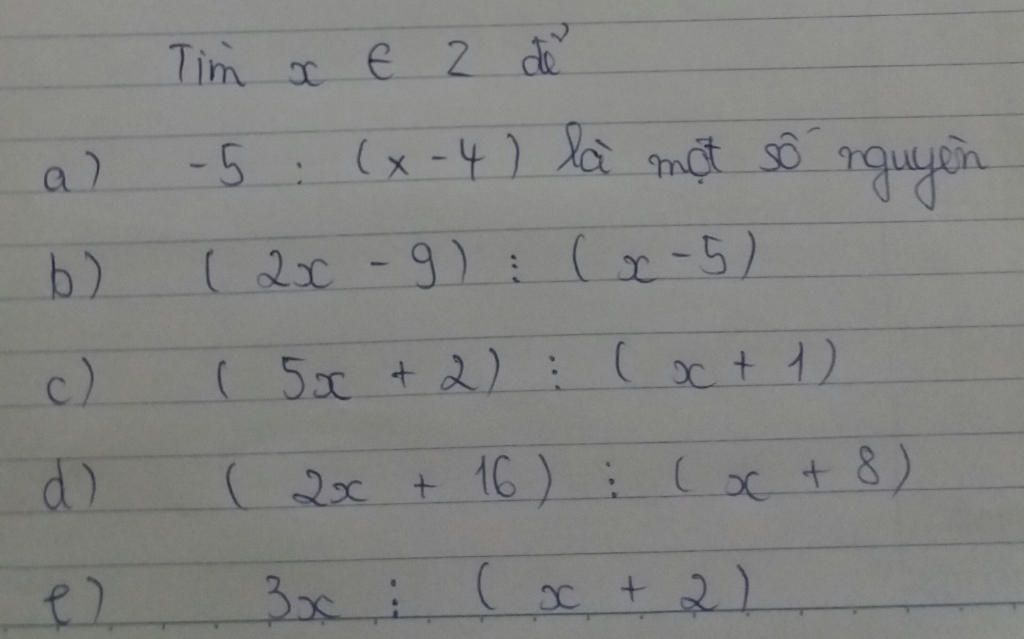 Tìm x ∈ Z để
a) -5 : (x - 4) là một số nguyên
b) (2x - 9) ⋮ (x - 5)
c) (5x + 2) ⋮ (x + 1)
d) (2x + 16) ⋮ (x + 8)
e) 3x ⋮ (x + 2)